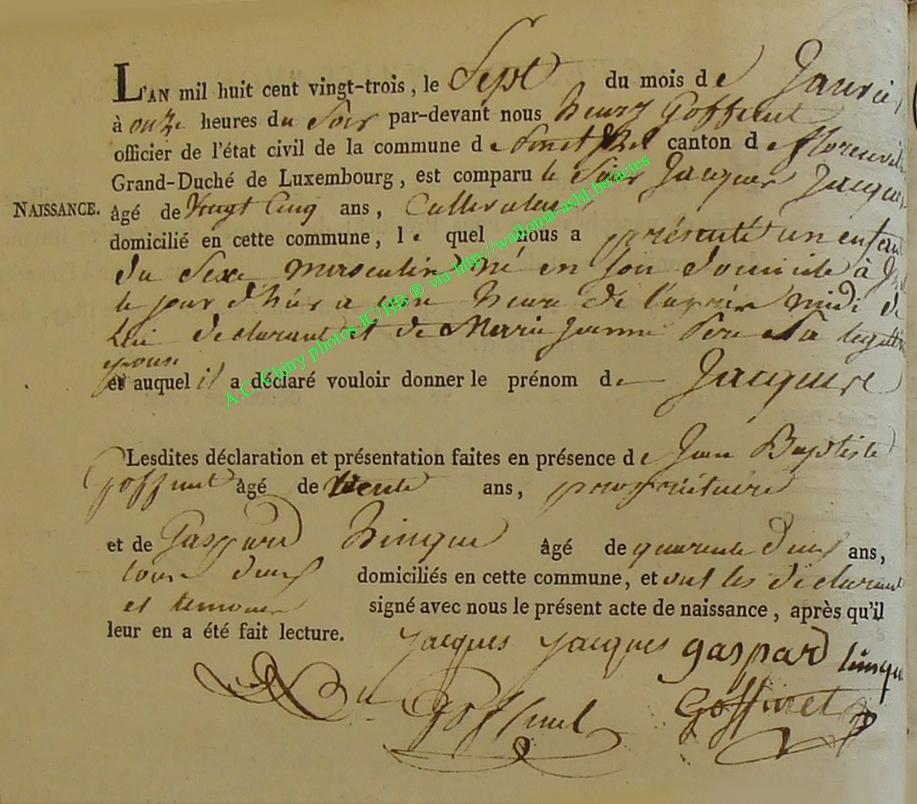 L'AN mil huit cent vingt-trois, le Sept du mois de Janvie
à onze heures du Soir par-devant nous henry Goffinet
officier de l'état civil de la commune d canton de florenvil
Grand-Duché de Luxembourg, est comparu le Sieur Jacques Jacques
NAISSANCE.
âgé de Vingt Cinq ans, Cultivateur
domicilié en cette commune, le quel nous a présenté un enfan
du Sexe masculin né en son domicile à
le jour d'hier a une heure de l'après midi de
Lui declarant et de Marie Jeanne
et auquel il a déclaré vouloir donner le prénom de Jacques
Lesdites déclaration et présentation faites en présence de Jean Baptiste
Goffinet âgé de trente ans, propriétaire
et de Gaspard âgé de quarente deux ans,
tous deux domiciliés en cette commune, et ont les declarant
et temoins signé avec nous le présent acte de naissance, après qu'il
leur en a été fait lecture.
Jacques Jacques gaspard
Goffinet Goffinet
A.C. Chiny photos JC/HB ® via http://wallonia-asbl benelcies